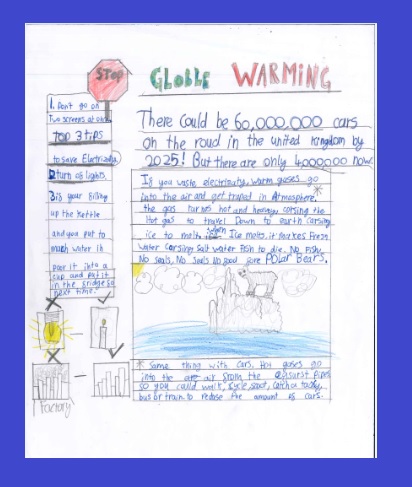 STOP
GLOBLE WARMING
1. Dont go on
Two screens at once
Top 3 tips
to save Electricity
2 turn of lights
3 is your filling
up the kettle
and you put to
much water in
poor it into a
cup and put it
in the fridge for
next time.
Factory
There Could be 60,000,000 cars
on the roud in the united kingdom by
2025! But there are only 4000000 now.
If you waste electricity, warm gases go
into the air and get traped in Atmosphere,
the gas turns hot and heavy, corsing the
Hot gas to travel Down to earth Corsing
ice to melt. when Ice melts, it makes Fresh
water Corsing salt water Fish to die. No Fish,
No seals, No seals no food for POLar Bears.
* Same thing with cars. Hot gases go
into the air from the pipes
so you could walk, cycle, scoot, catch a
bus or train to reduse the amount of cars.